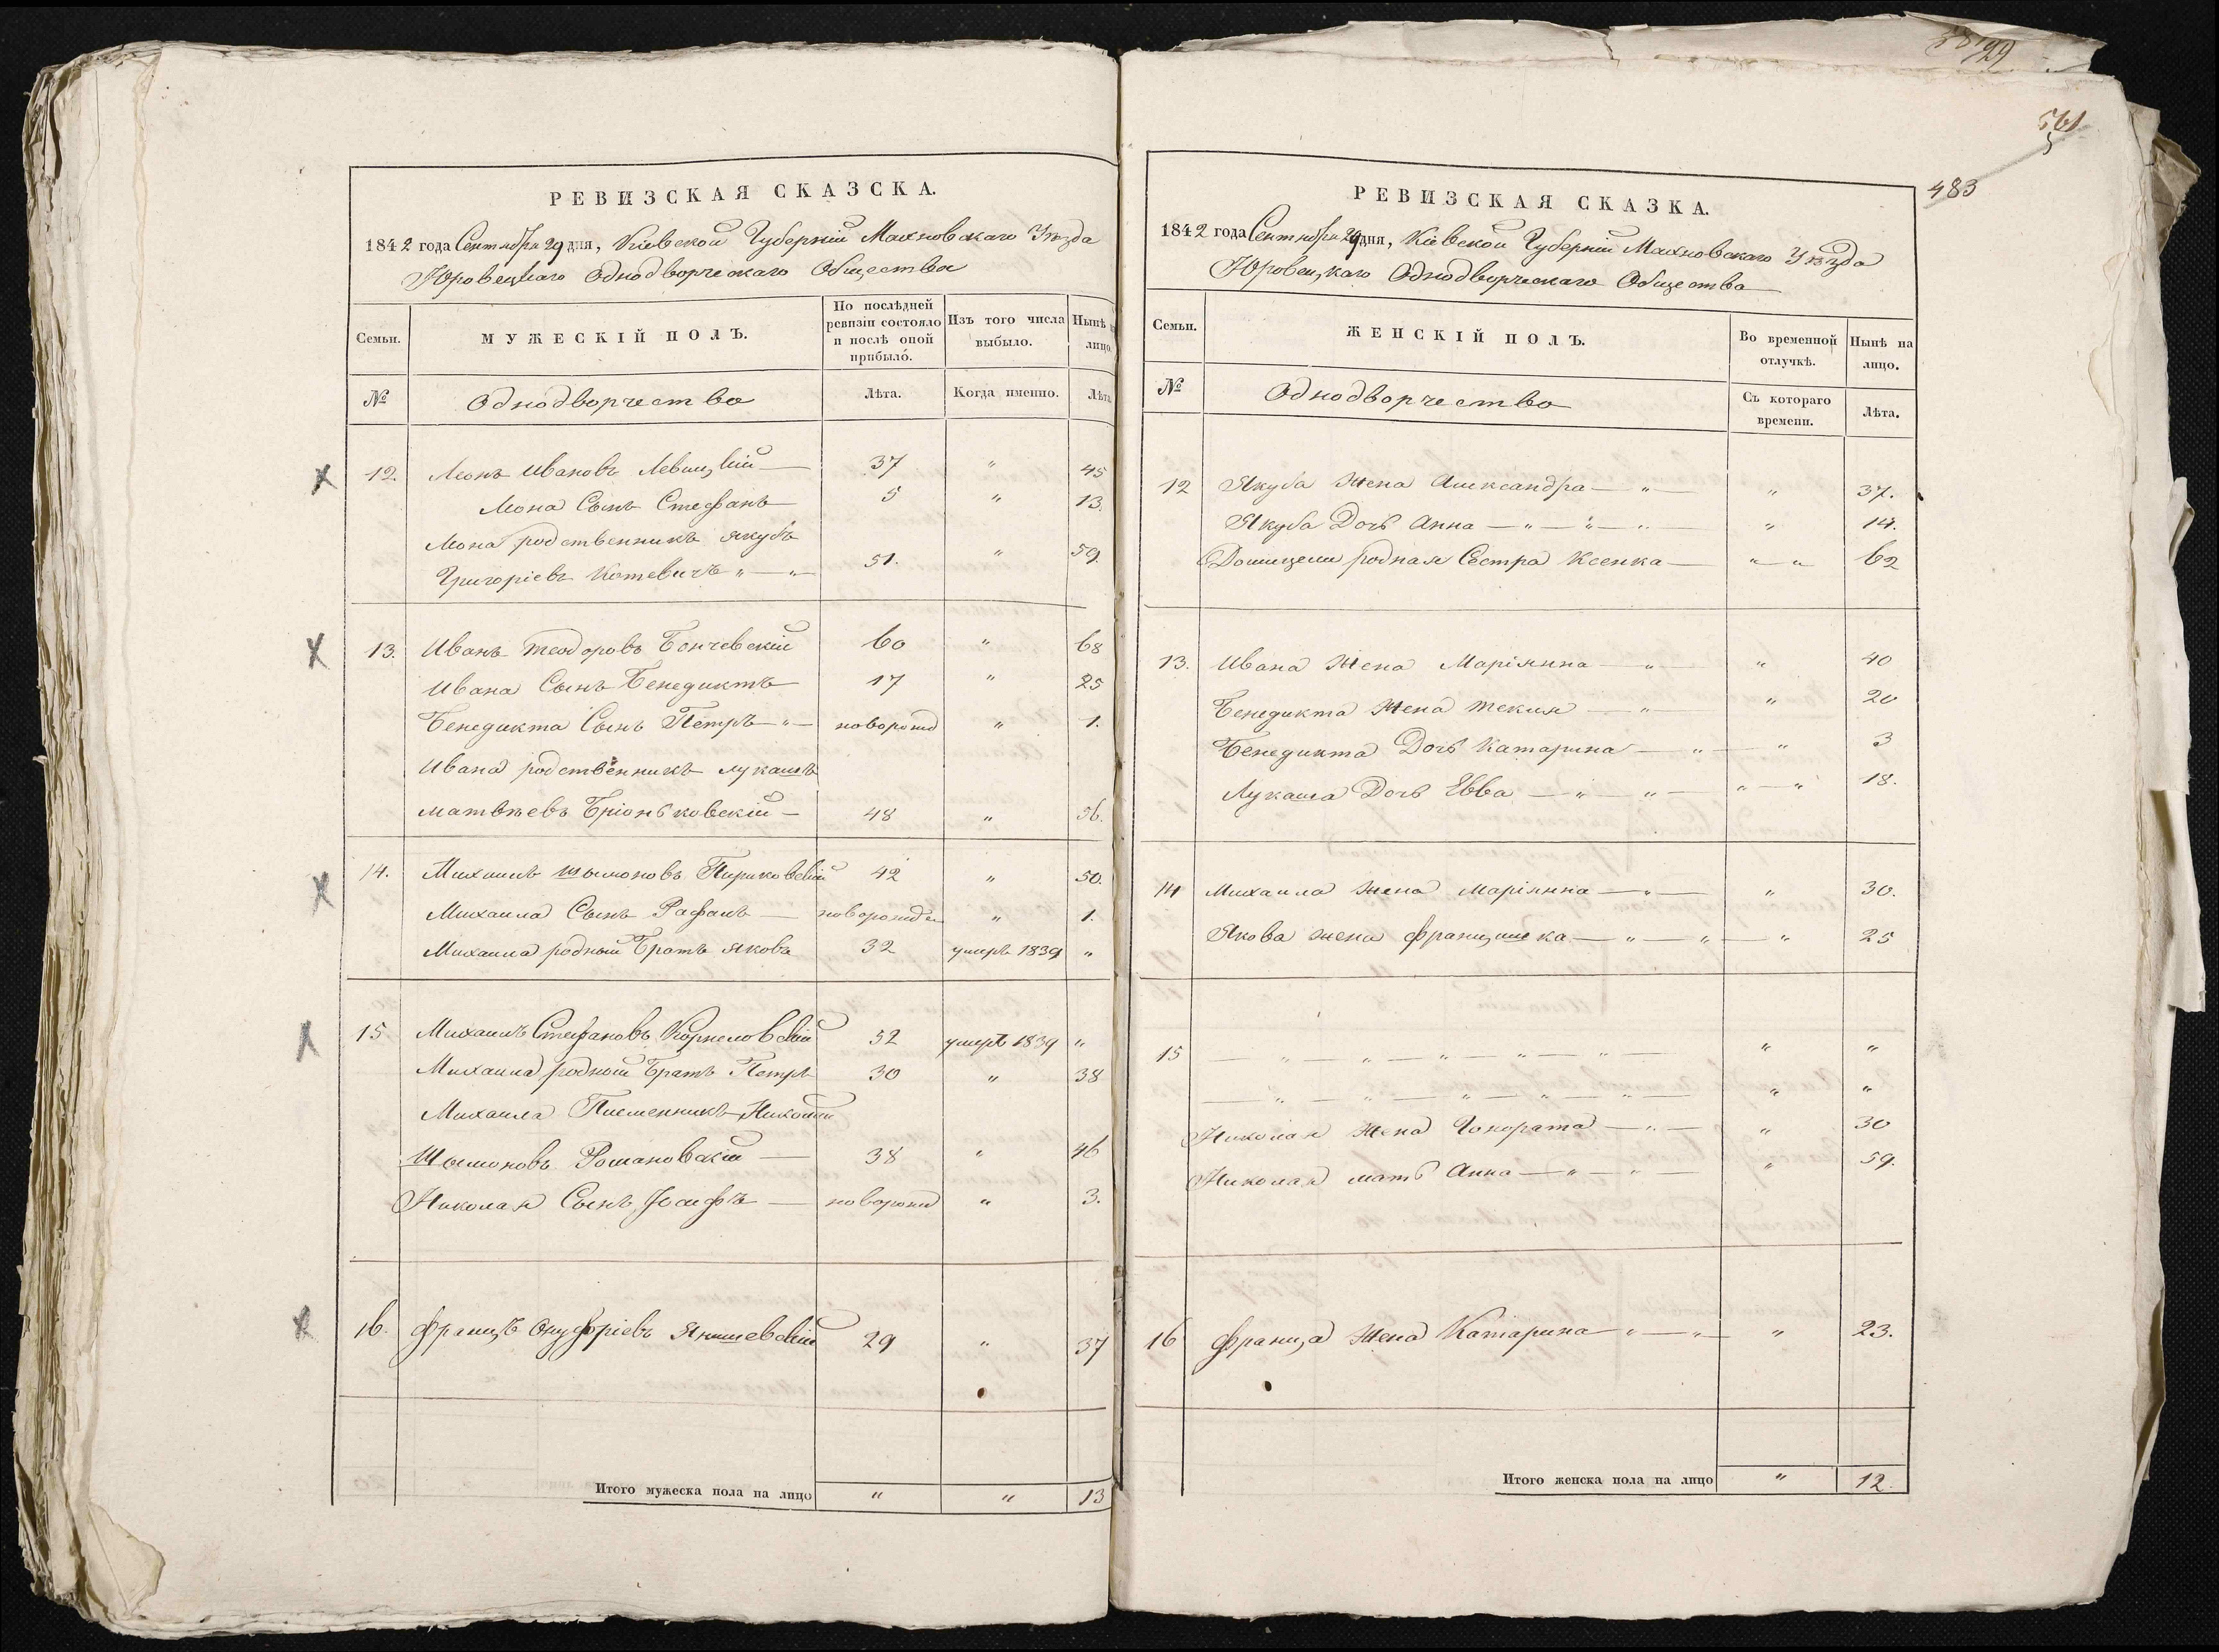 РЕВИЗСКАЯ СКАЗСКА.
1842 года Сентября 29 дня, Кіевской Губерніи Махновскаго Уѣзда
Юровецкаго Однодворческаго Общества
Семьи.
МУЖЕСКІЙ ПОЛЪ.
По послѣдней ревизіи состояло и послѣ оной прибыло.
Изъ того числа выбыло.
Нынѣ на лицо.
№
Однодворчество
Лѣта.
Когда именно.
Лѣта.
12. Леонъ Ивановъ Левицкій — 37 " 45
Леона Сынъ Стефанъ — 5 " 13.
Леона родственникъ Якубъ
Григоріевъ Котевичъ " — " 51. " 59.
13. Иванъ Теодоровъ Бончевскій 60 " 68
Ивана Сынъ Бенедиктъ 17 " 25
Бенедикта Сынъ Петръ — " — новорожд " 1.
Ивана родственникъ Лукашъ
Матвѣевъ Бріоньковскій — 48 " 56.
14. Михаилъ Шымоновъ Пириковскій 42 " 50.
Михаила Сынъ Рафаль — новорожден " 1.
Михаила родный Братъ Яковъ 32 умеръ 1839 "
15 Михаилъ Стефановъ Корнеловскій 52 умеръ 1839 "
Михаила родной Братъ Петръ 30 " 38
Михаила Племенникъ Николай
Шымоновъ Романовскій — 38 " 46
Николая Сынъ Іосифъ — новорожд " 3.
16. Францъ Онуфріевъ Янишевскій 29 " 37
Итого мужеска пола на лицо " " 13
561
483
РЕВИЗСКАЯ СКАЗКА.
1842 года Сентября 29 дня, Кіевской Губерніи Махновскаго Уѣзда
Юровецкаго Однодворческаго Общества
Семьи.
ЖЕНСКІЙ ПОЛЪ.
Во временной отлучкѣ.
Нынѣ на лицо.
№
Однодворчество
Съ котораго времени.
Лѣта.
12 Якуба Жена Александра — " — " 37.
Якуба Дочь Анна — " — " — " " 14.
родная Сестра Ксенка — " — " 62
13. Ивана Жена Маріянна — " — " 40
Бенедикта Жена Текля — " " 20
Бенедикта Дочь Катарина — " — " 3
Лукаша Дочь Евва — " — " — " — " 18.
14 Михаила Жена Маріянна — " — " 30.
Якова жена Францишка — " — " — " 25
15 — " — " — " — " — " — " "
— " — " — " — " — " — " "
Николая Жена Гонората — " — " 30
Николая мать Анна — " — " — " 59.
16 Франца Жена Катарина " — " — " 23.
Итого женска пола на лицо " 12.